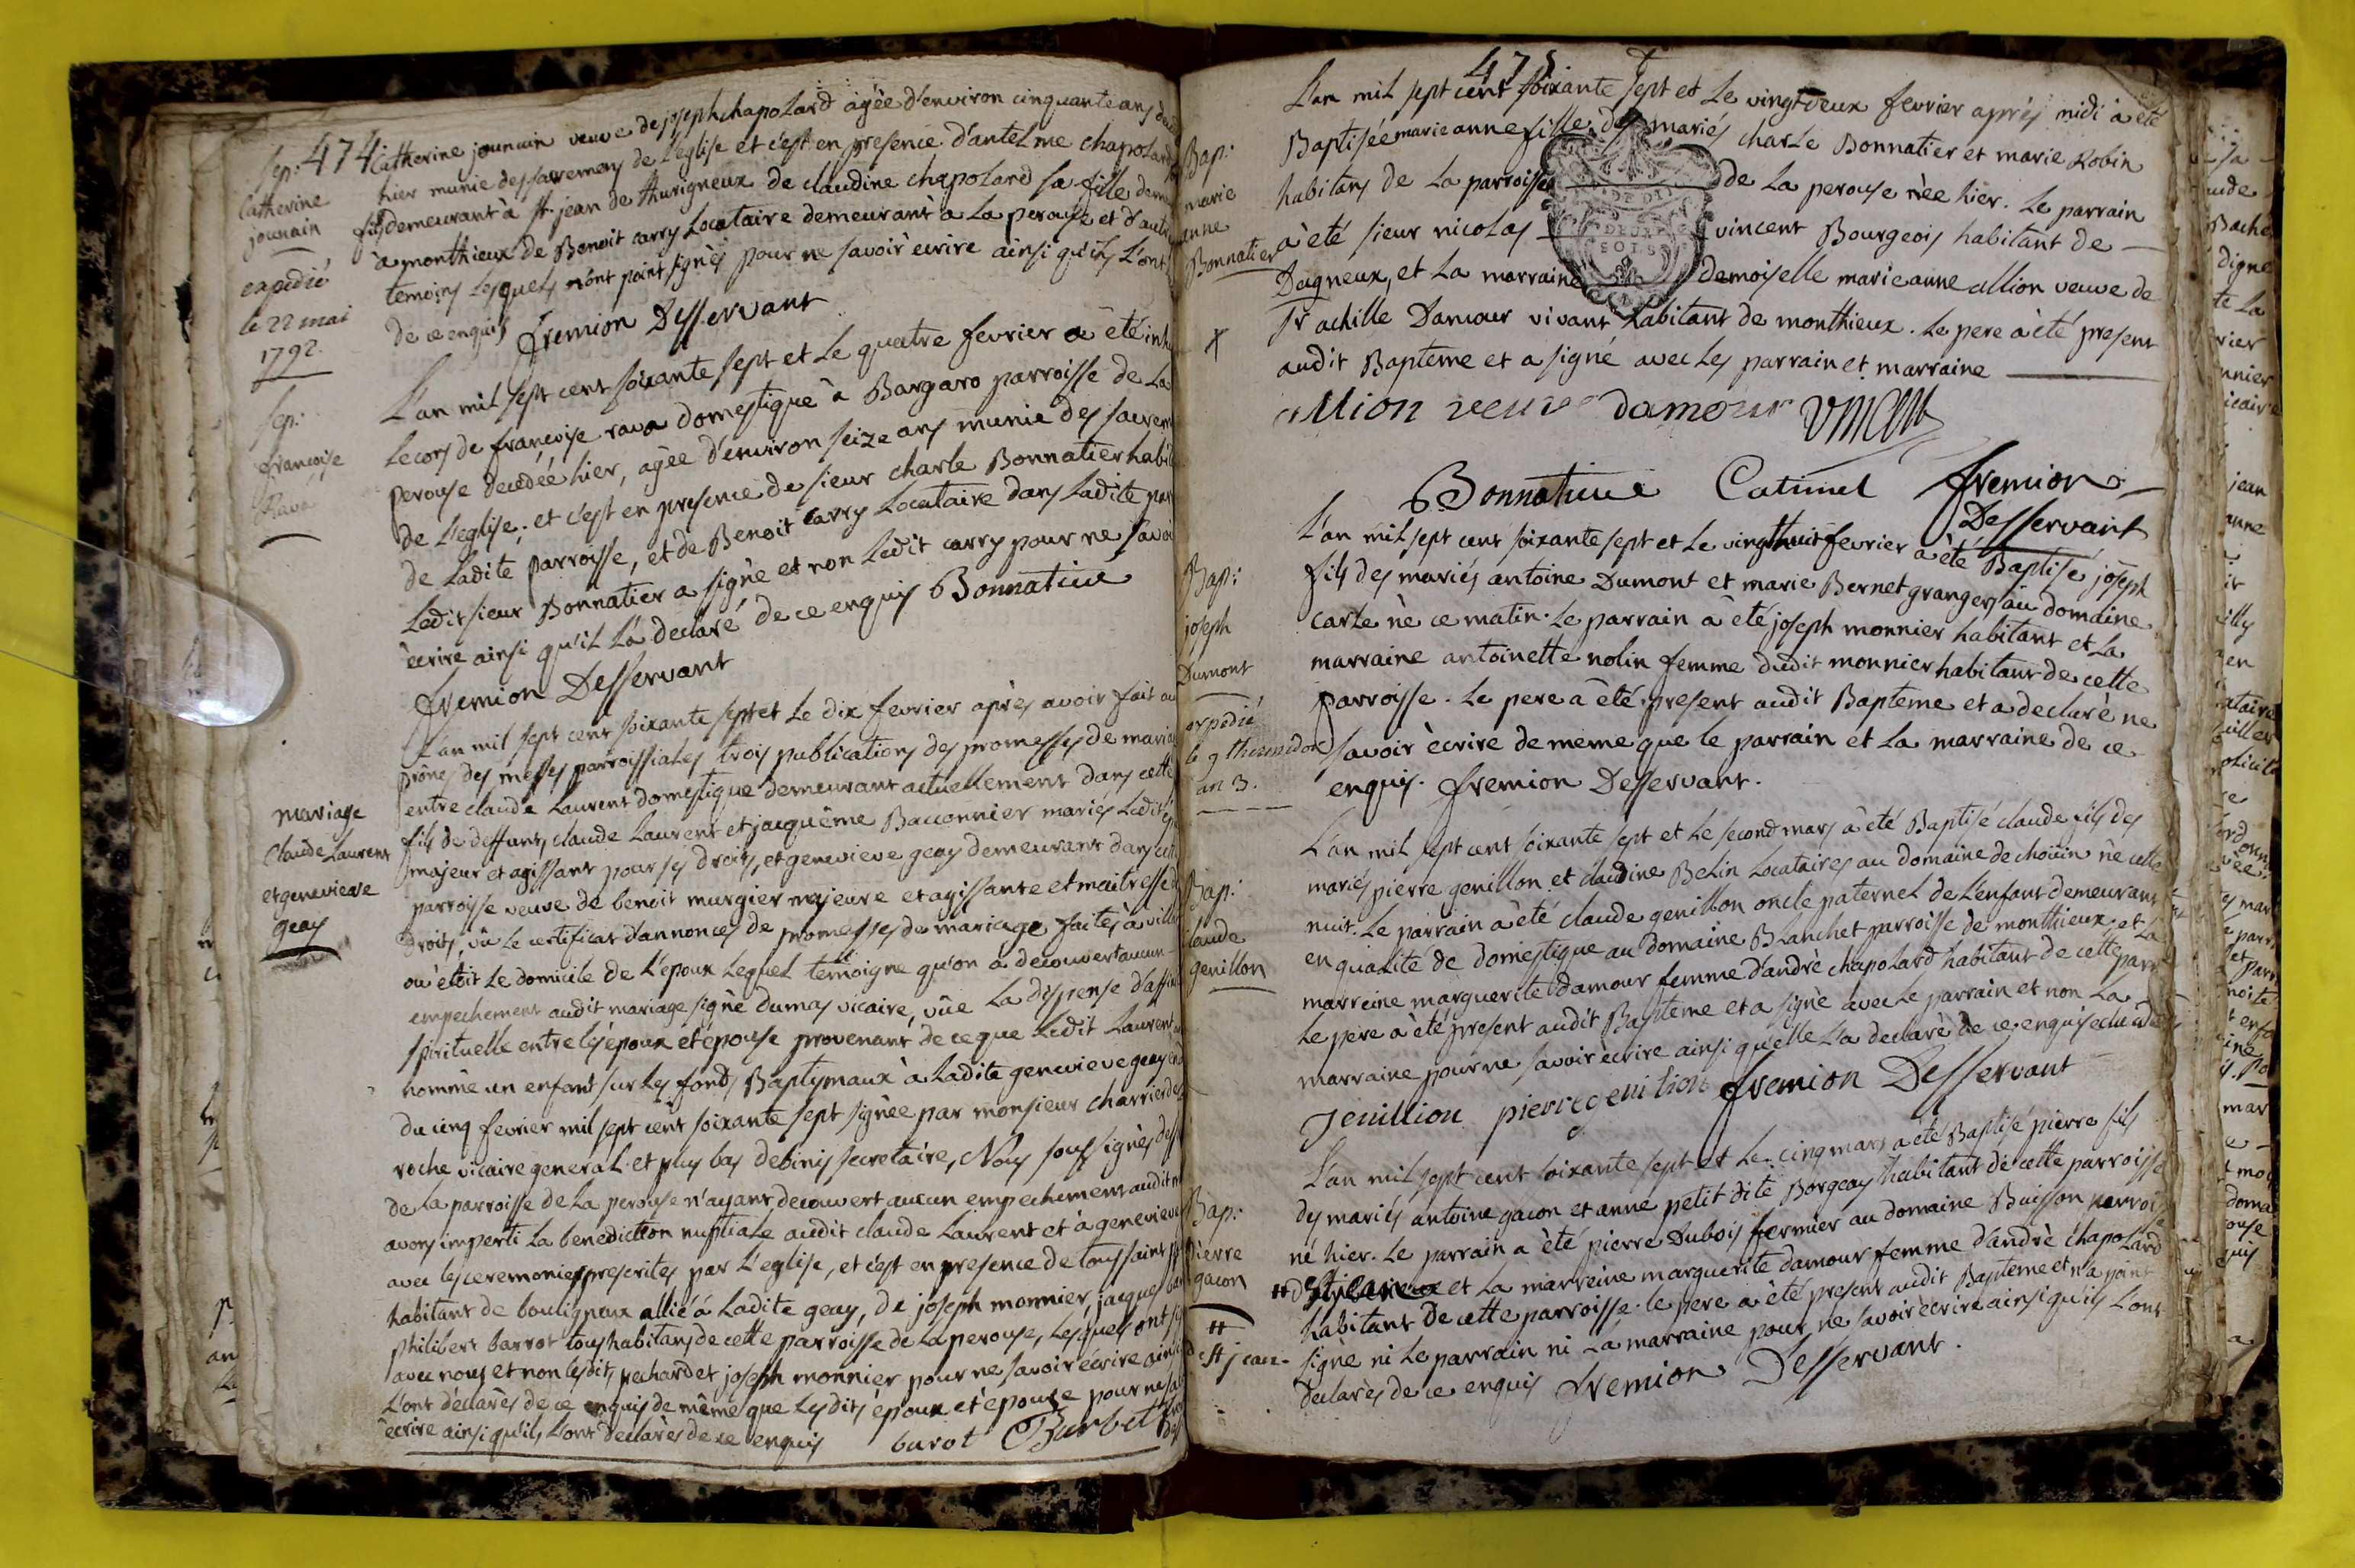 474
Sep:
Catherine
jounain
expedié
le 22 mai
1792.
Catherine jounain veuve de joseph chapolard agée d'environ cinquante ans
hier munie des sacremens de L'eglise et c'est en presence d'antelme chapolard
fils demeurant à st. jean de thurigneux de claudine chapolard sa fille
à monthieux de Benoit carry Locataire demeurant à La perouse et d'autres
temoins Lesquels n'ont point signés pour ne savoir ècrire ainsi qu'ils L'ont
de ce enquis fremion Desservant
Sep:
françoise
Rava
L'an mil sept cent soixante sept et Le quatre fevrier a été
Le cors de françoise rava domestique à Bargaro parroisse de La
perouse decedée hier, agée d'environ seize ans munie des
de L'eglise; et c'est en presence de sieur charle Bonnatier
de Ladite parroisse, et de Benoit carry Locataire dans Ladite
Ledit sieur Bonnatier a signè et non Ledit carry pour ne
ècrire ainsi qu'il L'a declaré de ce enquis Bonnatier
fremion Desservant
mariage
Claude Laurent
et genevieve
geay
L'an mil sept cent soixante sept et Le dix fevrier après avoir fait au
prônes des messes parroissiales trois publications des promesses de
entre claude Laurent domestique demeurant actuellement dans cette
fils de deffunts claude Laurent et jacquème Baconnier mariés Ledit
majeur et agissant pour ses droits, et genevieve geay demeurant dans
parroisse veuve de benoit murgier majeure et agissante et maitresse
droits, vû Le certificat d'annonces de promesses de mariage faites à
où étoit Le domicile de L'epoux Lequel temoigne qu'on a decouvert aucun
empechement audit mariage signè dumas vicaire, vüe La dispense
spirituelle entre les époux et épouse provenant de ce que Ledit Laurent
nommé un enfant sur Les fonds Baptismaux à Ladite genevieve geay
du cinq fevrier mil sept cent soixante sept signèe par monsieur charrier
roche vicaire general et plus bas debinis secretaire, Nous soussignès
de La parroisse de La perouse n'ayant decouvert aucun empechement audit
avons imparti La benediction nuptiale audit claude Laurent et à genevieve
avec les ceremonies prescrites par L'eglise, et c'est en presence de toussaint
habitant de bouligneux allié à Ladite geay, de joseph monnier, jacques
philibert barrot tous habitans de cette parroisse de La perouse, Lesquels ont
avec nous et non lesdits pechard et joseph monnier pour ne savoir écrire
L'ont déclarès de ce enquis de même que Lesdits époux et épouse pour ne
écrire ainsi qu'ils L'ont declarès de ce enquis barot Barbet
475
Bap:
marie
anne
Bonnatier
L'an mil sept cent soixante sept et Le vingt deux fevrier après midi à été
Baptisée marie anne fille des mariés charle Bonnatier et marie Robin
habitans de La parroisse de La perouse née hier. Le parrain
a été sieur nicolas vincent Bourgeois habitant de
Dagneux, et La marraine demoiselle marie anne allion veuve de
Sr achille Damour vivant habitant de monthieux. Le pere à été present
audit Bapteme et a signé avec Les parrain et marraine
allion veuve damour vincent
Bonnatier Catimel fremion
Desservant
Bap:
joseph
Dumont
expedié
le 9 thermidor
an 3.
L'an mil sept cent soixante sept et Le vingthuit fevrier a été Baptisé joseph
fils des mariés antoine Dumont et marie Bernet grangers au domaine
carle né ce matin. Le parrain à été joseph monnier habitant et La
marraine antoinette nolin femme dudit monnier habitans de cette
parroisse. Le pere a été present audit Bapteme et a declarè ne
savoir ècrire de meme que le parrain et La marraine de ce
enquis. fremion Desservant.
Bap:
claude
genillon
L'an mil sept cent soixante sept et Le second mars à été Baptisé claude fils des
mariés pierre genillon et claudine Belin Locataires au domaine de choüin né cette
nuit. Le parrain à été claude genillon oncle paternel de L'enfant demeurant
en qualité de domestique au domaine Blanchet parroisse de monthieux et La
marreine marguerite damour femme d'andrè chapolard habitant de cette
Le pere à été present audit Bapteme et a signè avec Le parrain et non La
marraine pour ne savoir ècrire ainsi qu'elle L'a declaré de ce enquise
Jenillion pierre genilion fremion Desservant
Bap:
pierre
gacon
#
de st jean
L'an mil sept cent soixante sept et Le cinq mars a été Baptisé pierre fils
des mariés antoine gacon et anne petit dite Borgeay habitant de cette parroisse
né hier. Le parrain a été pierre Dubois fermier au domaine Buisson parroisse
# et La marreine marguerite damour femme d'andrè chapolard
habitant de cette parroisse. le pere a été present audit Bapteme et n'a point
signè ni Le parrain ni La marraine pour ne savoir ècrire ainsi qu'ils L'ont
declarès de ce enquis fremion Desservant.